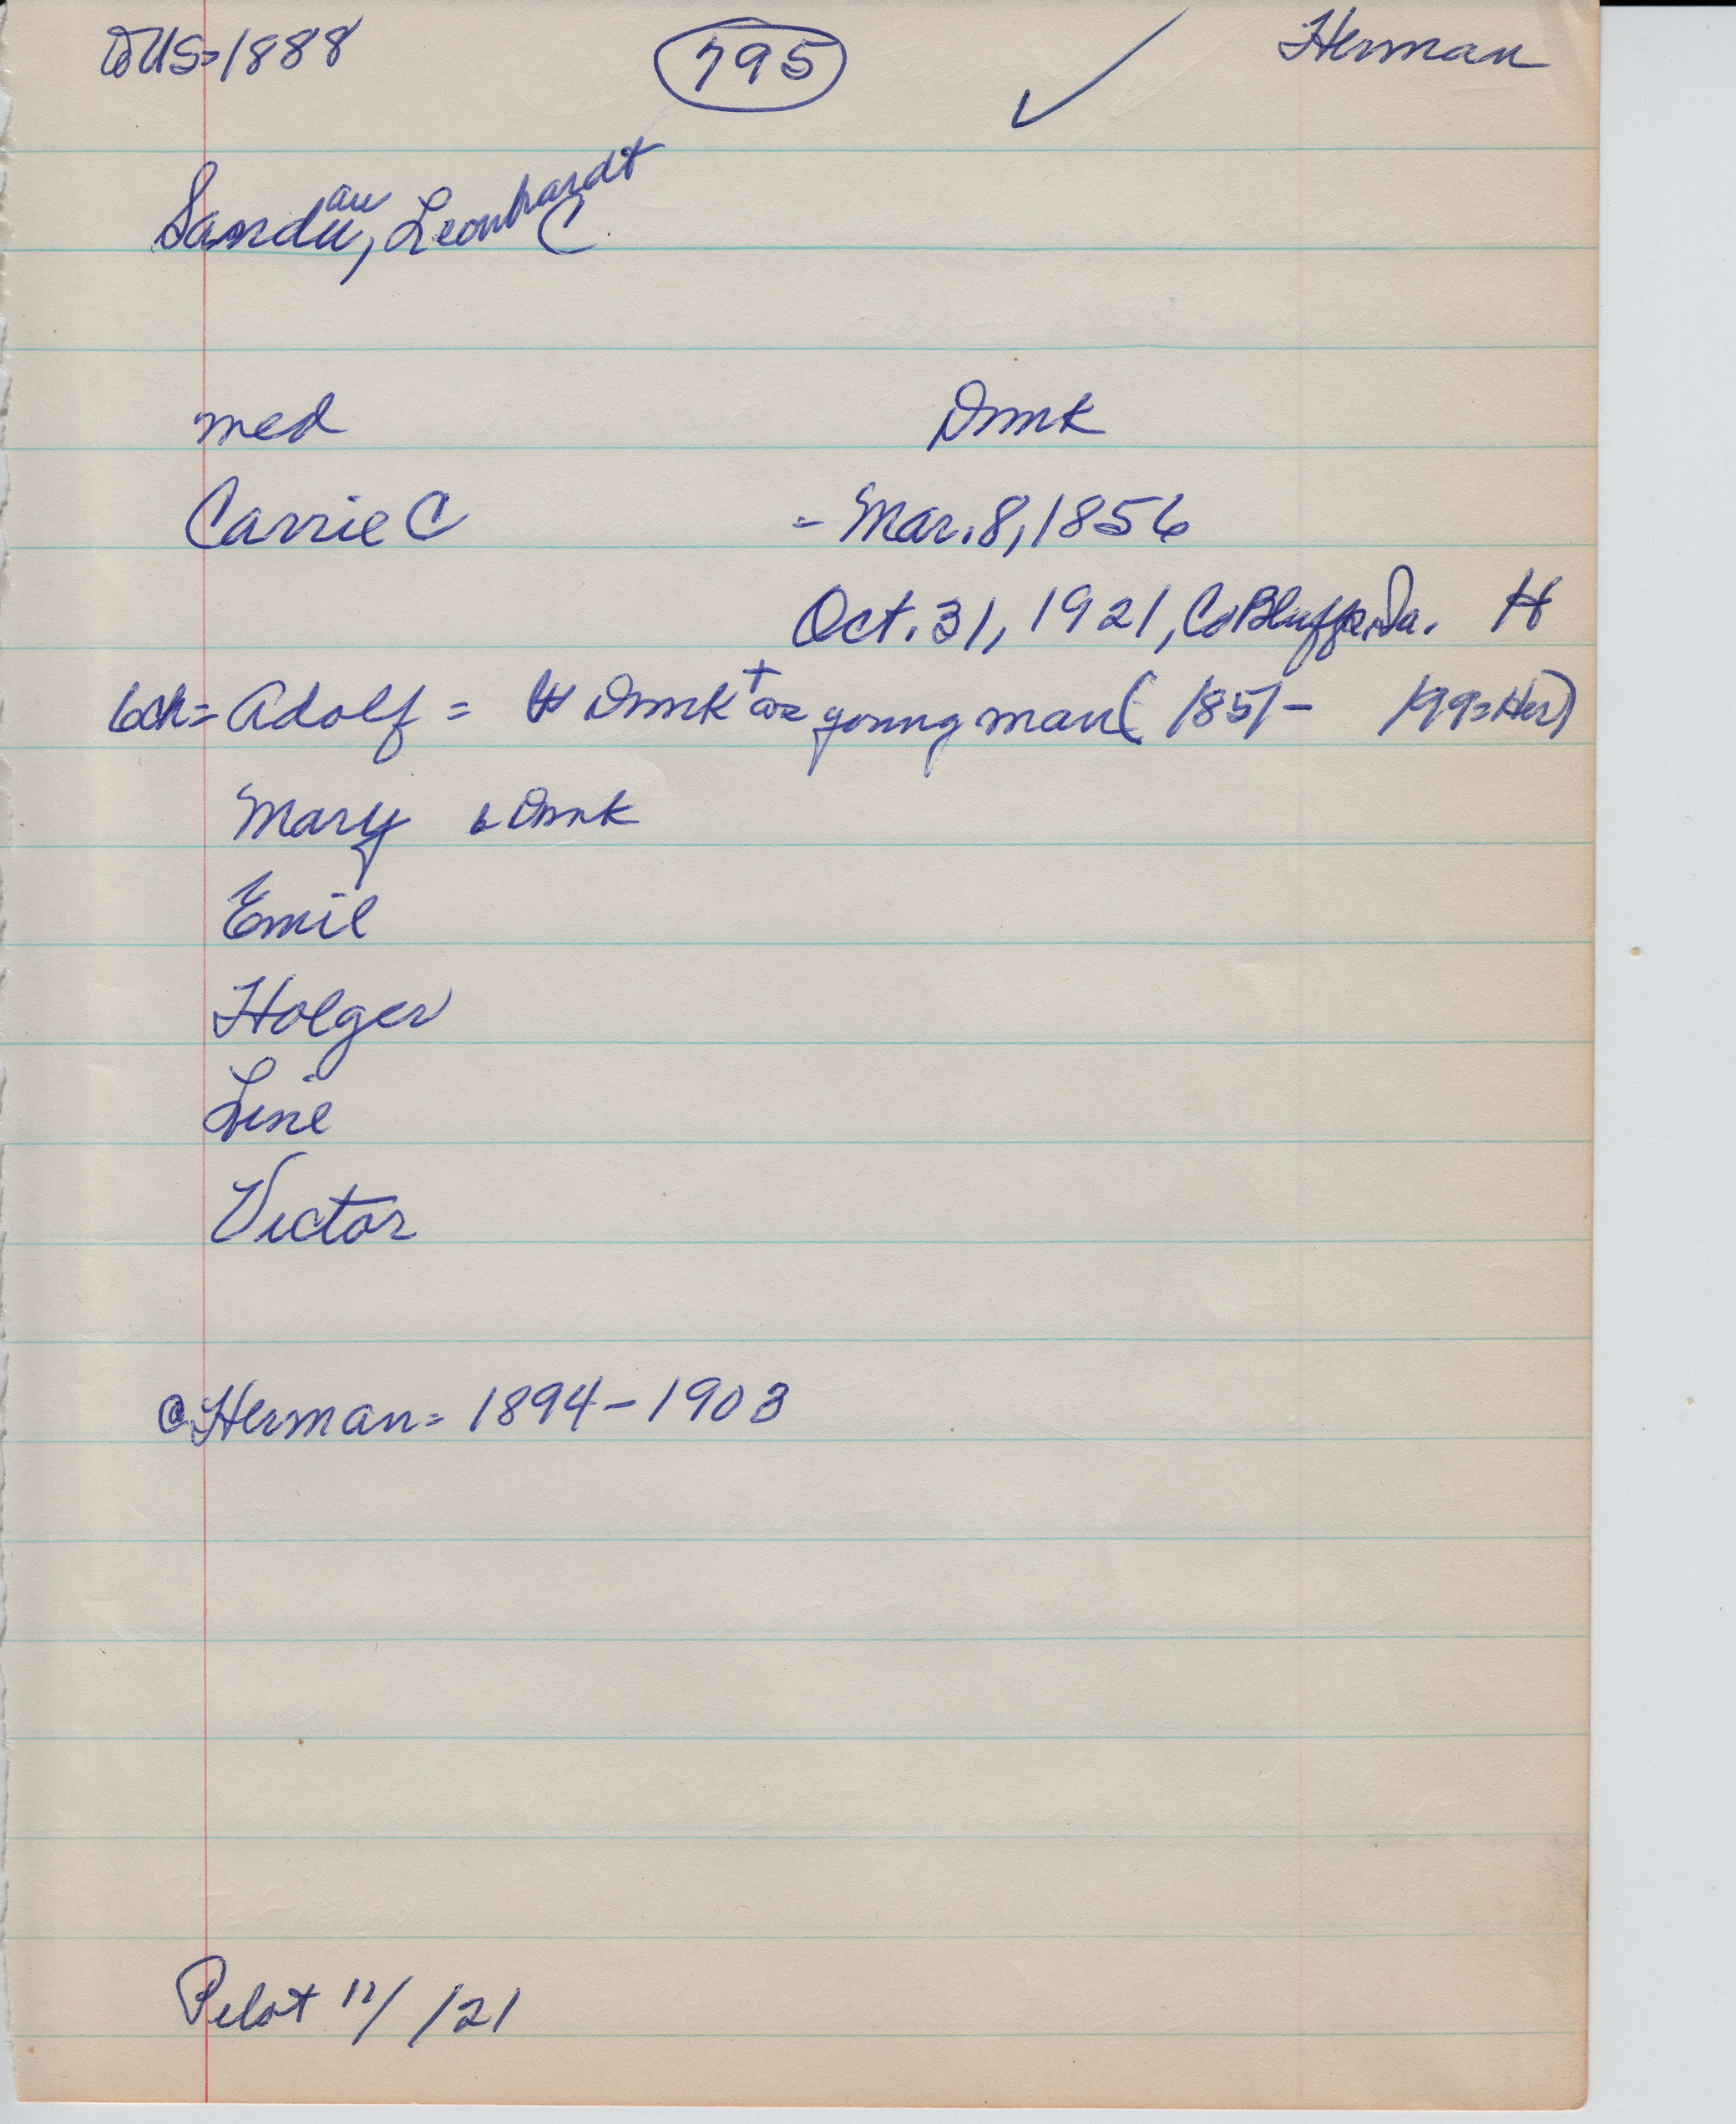 to US=1888 795 ✓ Herman
Sandau, Leonhardt C
med Dnmk
Carrie C = Mar. 8, 1856
Oct. 31, 1921, Co Bluffs, Ia. H
6ch= Adolf = Dnmk + as young man ( 1851- =Her)
Mary b Dnmk
Emil
Holger
Line
Victor
@ Herman= 1894-1903
Pilot 11/ /21